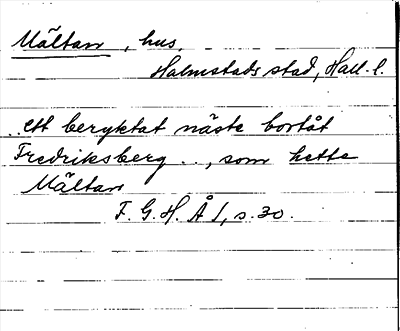 Mältan, hus,
Halmstads stad, Hall. l.
..ett beryktat näste bortåt
Fredriksberg .., som hette
Mältan
F. G. H. Å 1, s. 30.